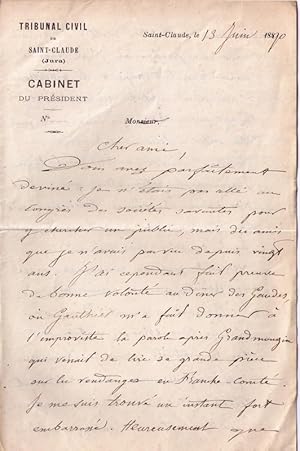 TRIBUNAL CIVIL
DE
SAINT-CLAUDE
(Jura)
CABINET
DU PRÉSIDENT
N°
Saint-Claude, le 13 Juin 1890
Monsieur,
Cher ami,
Vous avez parfaitement
deviné : je n'étais pas allé au
congrès des sociétés savantes pour
y chercher un public, mais des amis
que je n'avais pas vu depuis vingt
ans. J'ai cependant fait preuve
de bonne volonté au dîner des Gaudes
où Gauthier m'a fait donner à
l'improviste la parole après Grandmougin
qui venait de lire de grande pièce
sur les vendanges en Franche-Comté.
Je me suis trouvé un instant fort
embarrassé. Heureusement que